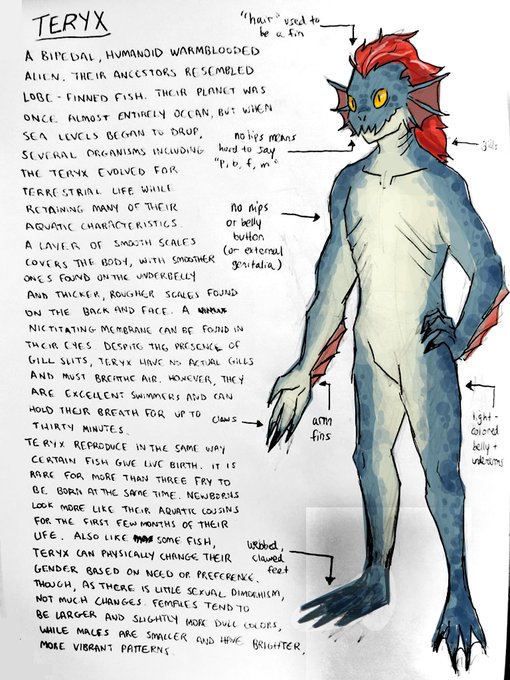 TERYX
A BIPEDAL, HUMANOID WARMBLOODED
ALIEN. THEIR ANCESTORS RESEMBLED
LOBE-FINNED FISH. THEIR PLANET WAS
ONCE ALMOST ENTIRELY OCEAN, BUT WHEN
SEA LEVELS BEGAN TO DROP,
SEVERAL ORGANISMS INCLUDING
THE TERYX EVOLVED FOR
TERRESTRIAL LIFE WHILE
RETAINING MANY OF THEIR
AQUATIC CHARACTERISTICS.
A LAYER OF SMOOTH SCALES
COVERS THE BODY, WITH SMOOTHER
ONES FOUND ON THE UNDERBELLY
AND THICKER, ROUGHER SCALES FOUND
ON THE BACK AND FACE. A
NICTITATING MEMBRANE CAN BE FOUND IN
THEIR EYES. DESPITE THE PRESENCE OF
GILL SLITS, TERYX HAVE NO ACTUAL GILLS
AND MUST BREATHE AIR. HOWEVER, THEY
ARE EXCELLENT SWIMMERS AND CAN
HOLD THEIR BREATH FOR UP TO
THIRTY MINUTES.
TERYX REPRODUCE IN THE SAME WAY
CERTAIN FISH GIVE LIVE BIRTH. IT IS
RARE FOR MORE THAN THREE FRY TO
BE BORN AT THE SAME TIME. NEWBORNS
LOOK MORE LIKE THEIR AQUATIC COUSINS
FOR THE FIRST FEW MONTHS OF THEIR
LIFE. ALSO LIKE SOME FISH,
TERYX CAN PHYSICALLY CHANGE THEIR
GENDER BASED ON NEED OR PREFERENCE.
THOUGH, AS THERE IS LITTLE SEXUAL DIMORHISM,
NOT MUCH CHANGES. FEMALES TEND TO
BE LARGER AND SLIGHTLY MORE DULL COLORS,
WHILE MALES ARE SMALLER AND HAVE BRIGHTER,
MORE VIBRANT PATTERNS.
"hair" used to
be a fin
no lips means
hard to say
"p, b, f, m"
gills
no nips
or belly
button
(or external
genitalia)
claws
arm
fins
light-
colored
belly +
underarms
webbed,
clawed
feet